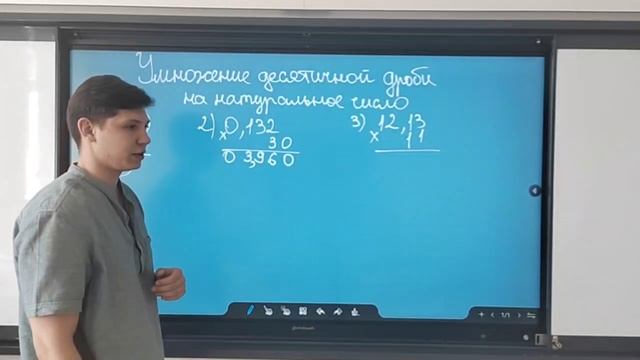 Умножение десятичной дроби
на натуральное число
2) 0,132
× 30
0 3,960
3) 12,13
× 11
1/1